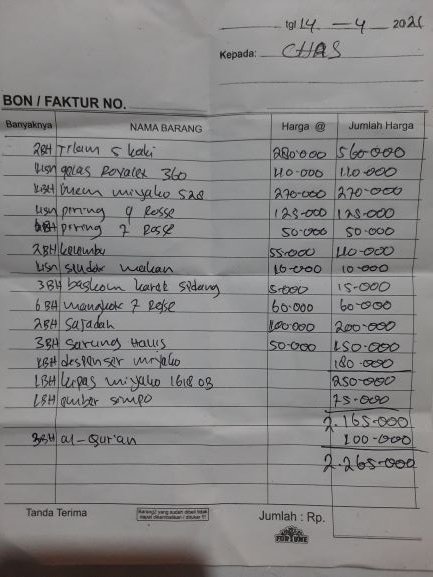 tgl 14 - 4 2021
Kepada: CHAS
BON / FAKTUR NO.
Banyaknya NAMA BARANG Harga @ Jumlah Harga
2BH Tilam 5 kaki 280.000 560.000
1Lsn gelas Royalex 360 110.000 110.000
1BH miyako 528 270.000 270.000
1Lsn piring 9 Rosse 125.000 125.000
piring 7 Rosse 50.000 50.000
2BH kelambu 55.000 110.000
1Lsn sendok makan 10.000 10.000
3BH baskom karet sedang 5.000 15.000
6BH mangkok 7 Rose 60.000 60.000
2BH Sajadah 100.000 200.000
3BH Sarung Halus 50.000 150.000
1BH despenser miyako 180.000
1BH kipas miyako 1618 GB 250.000
1BH ember simpo 75.000
2.165.000
3BH al-Qur'an 100.000
2.265.000
Tanda Terima
Barang2 yang sudah dibeli tidak
dapat dikembalikan / ditukar !!!
Jumlah : Rp.
FORTUNE